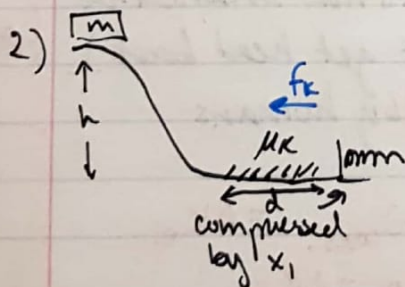 2)
m
h
fk
μk
d
compressed
by x₁